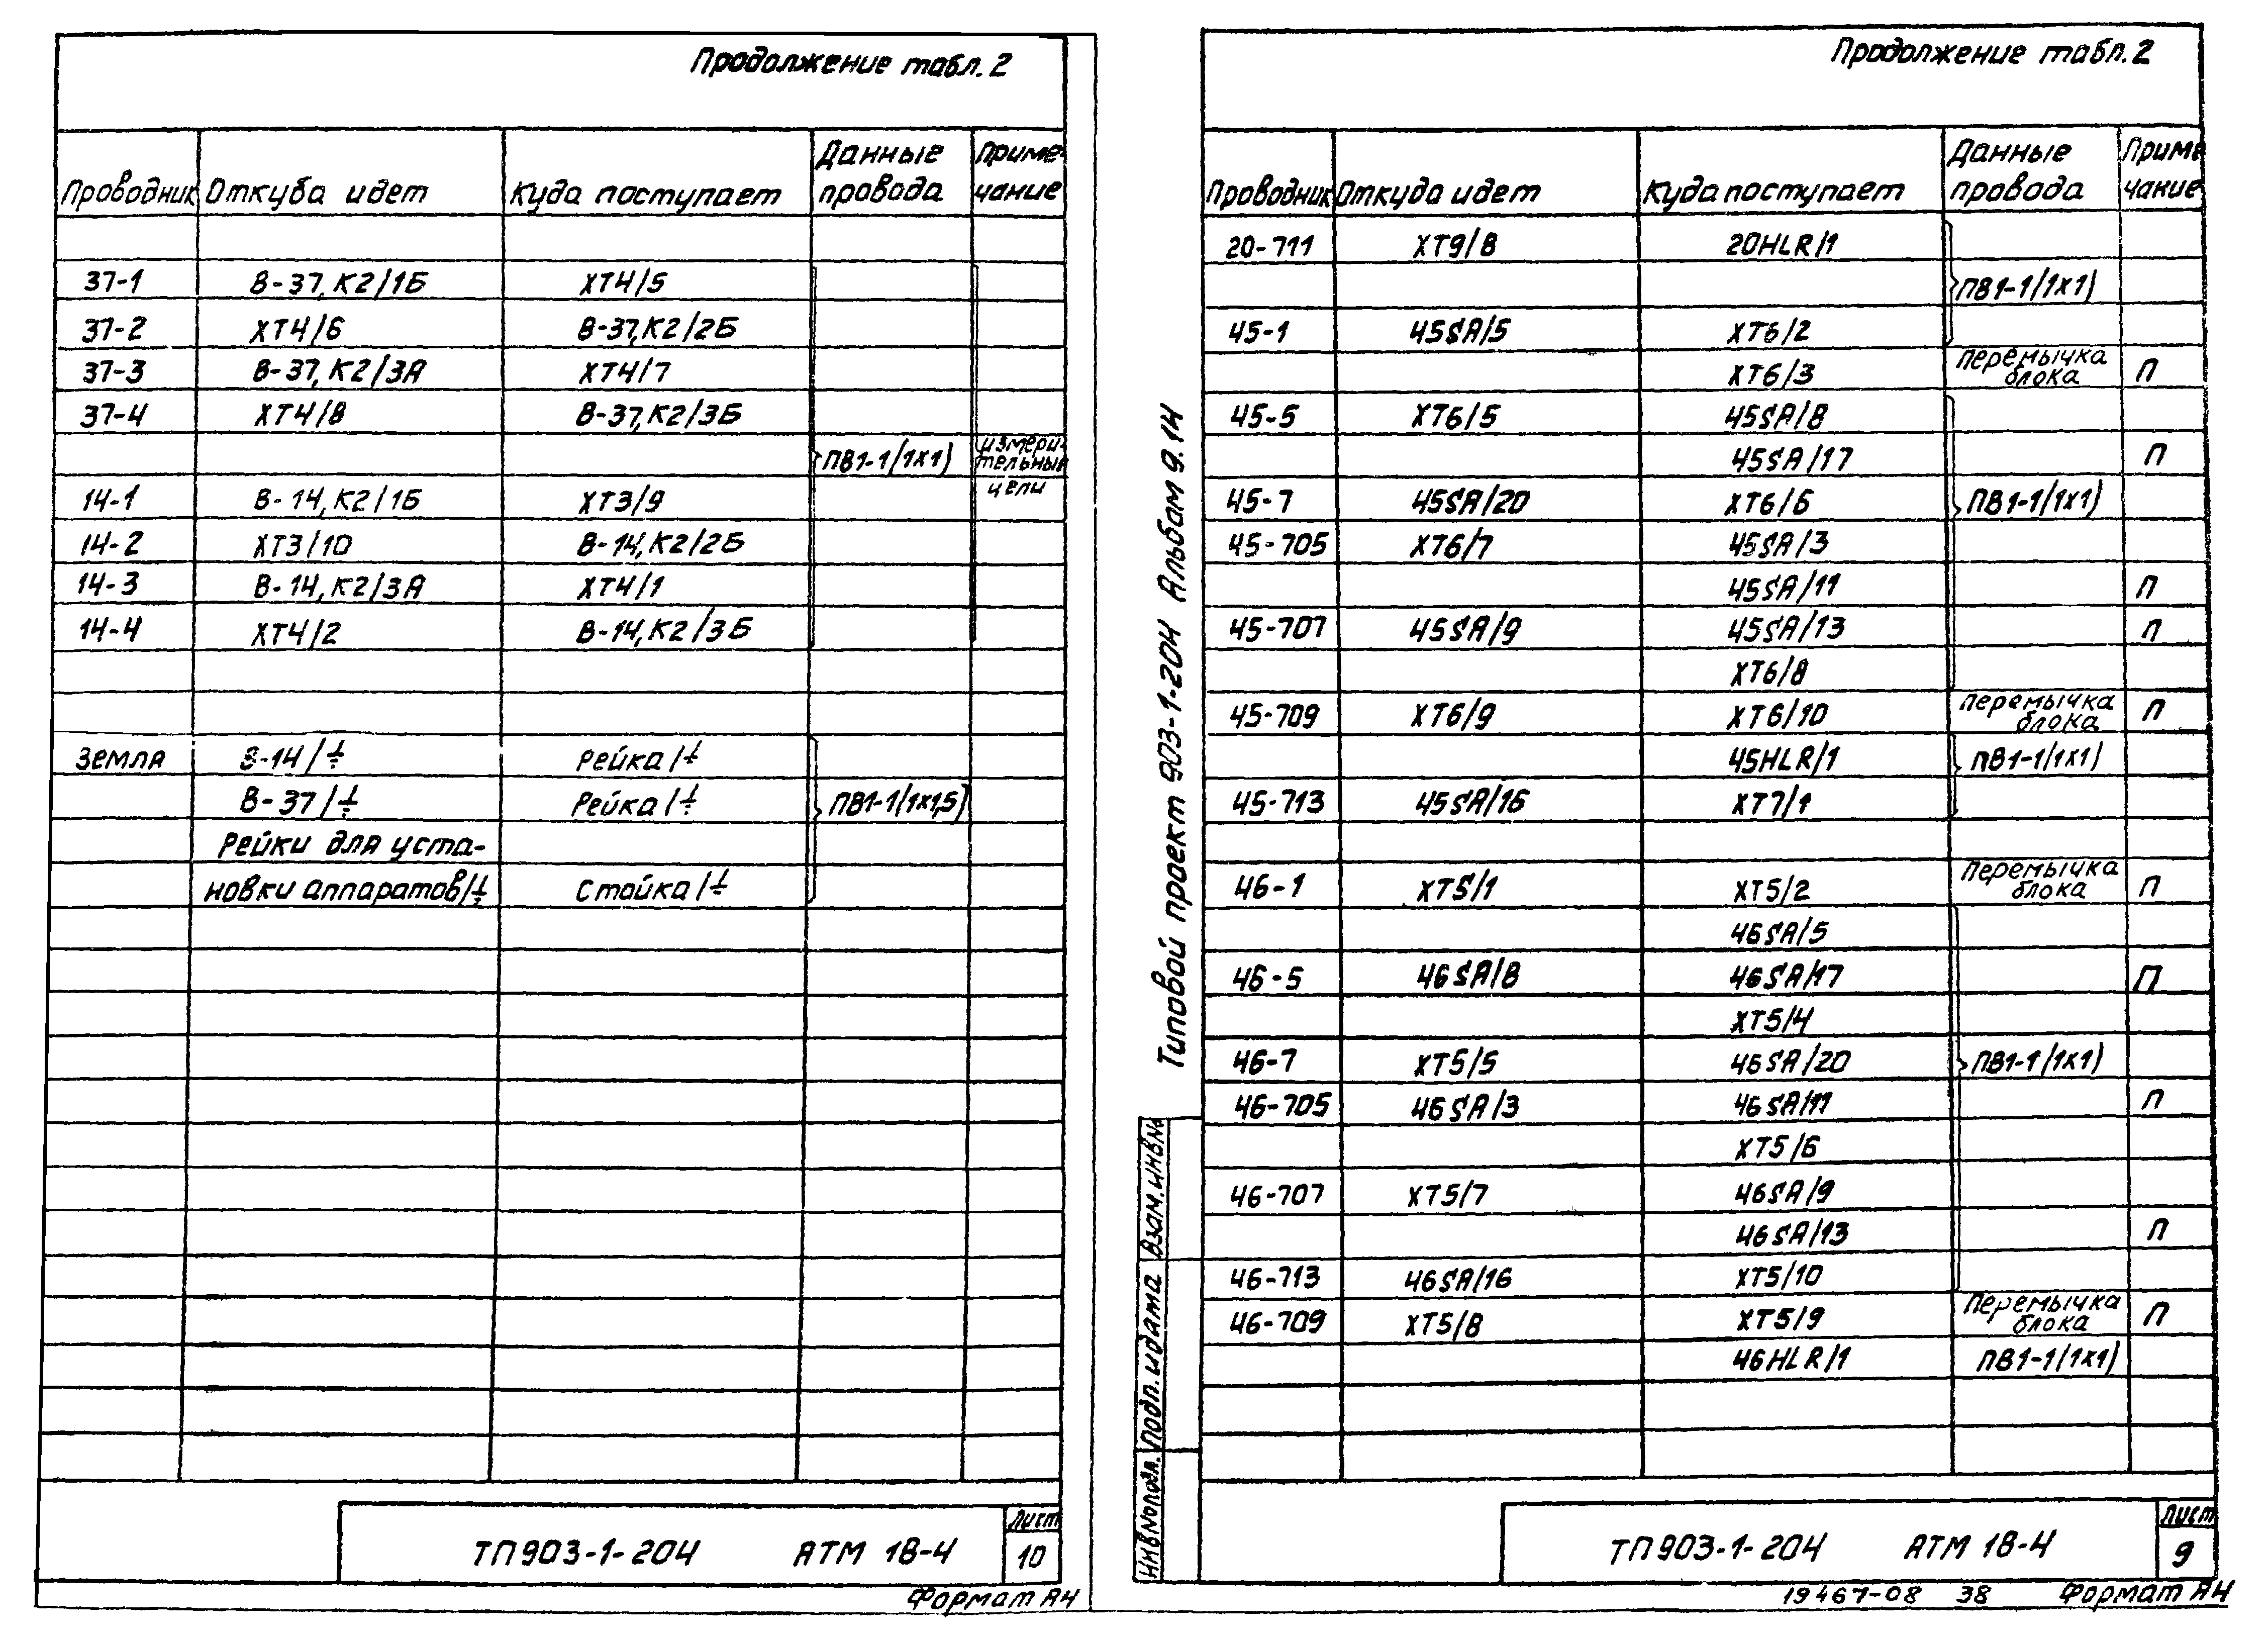 Продолжение табл. 2
Проводник Откуда идет Куда поступает Данные провода Примечание
37-1 В-37, К2/1Б ХТ4/5
37-2 ХТ4/6 В-37, К2/2Б
37-3 В-37, К2/3А ХТ4/7
37-4 ХТ4/8 В-37, К2/3Б
ПВ1-1/(1х1) измерительные цепи
14-1 В-14, К2/1Б ХТ3/9
14-2 ХТ3/10 В-14, К2/2Б
14-3 В-14, К2/3А ХТ4/1
14-4 ХТ4/2 В-14, К2/3Б
Земля В-14/⏚ Рейка/⏚
В-37/⏚ Рейка/⏚ ПВ1-1/(1х1,5)
Рейки для уста-
новки аппаратов/⏚ Стойка/⏚
ТП903-1-204 АТМ 18-4 Лист 10
Формат А4
Продолжение табл. 2
Проводник Откуда идет Куда поступает Данные провода Примечание
20-711 ХТ9/8 20HLR/1
ПВ1-1/(1х1)
45-1 45SA/5 ХТ6/2
ХТ6/3 Перемычка блока П
45-5 ХТ6/5 45SA/8
45SA/17 П
45-7 45SA/20 ХТ6/6 ПВ1-1/(1х1)
45-705 ХТ6/7 45SA/3
45SA/11 П
45-707 45SA/9 45SA/13 П
ХТ6/8
45-709 ХТ6/9 ХТ6/10 Перемычка блока П
45HLR/1 ПВ1-1/(1х1)
45-713 45SA/16 ХТ7/1
46-1 ХТ5/1 ХТ5/2 Перемычка блока П
46SA/5
46-5 46SA/8 46SA/17 П
ХТ5/4
46-7 ХТ5/5 46SA/20 ПВ1-1/(1х1)
46-705 46SA/3 46SA/11 П
ХТ5/6
46-707 ХТ5/7 46SA/9
46SA/13 П
46-713 46SA/16 ХТ5/10
46-709 ХТ5/8 ХТ5/9 Перемычка блока П
46HLR/1 ПВ1-1/(1х1)
Типовой проект 903-1-204 Альбом 9.14
Инв№подл. Подп. и дата Взам.инв№
ТП903-1-204 АТМ 18-4 Лист 9
19467-08 38 Формат А4